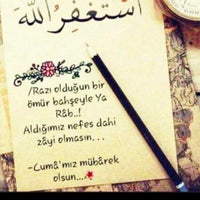 أستغفر الله
/Razı olduğun bir
ömür bahşeyle Ya
Râb..!
Aldığımız nefes dahi
zâyi olmasın. . .
-Cumâ'mız mübârek
olsun...